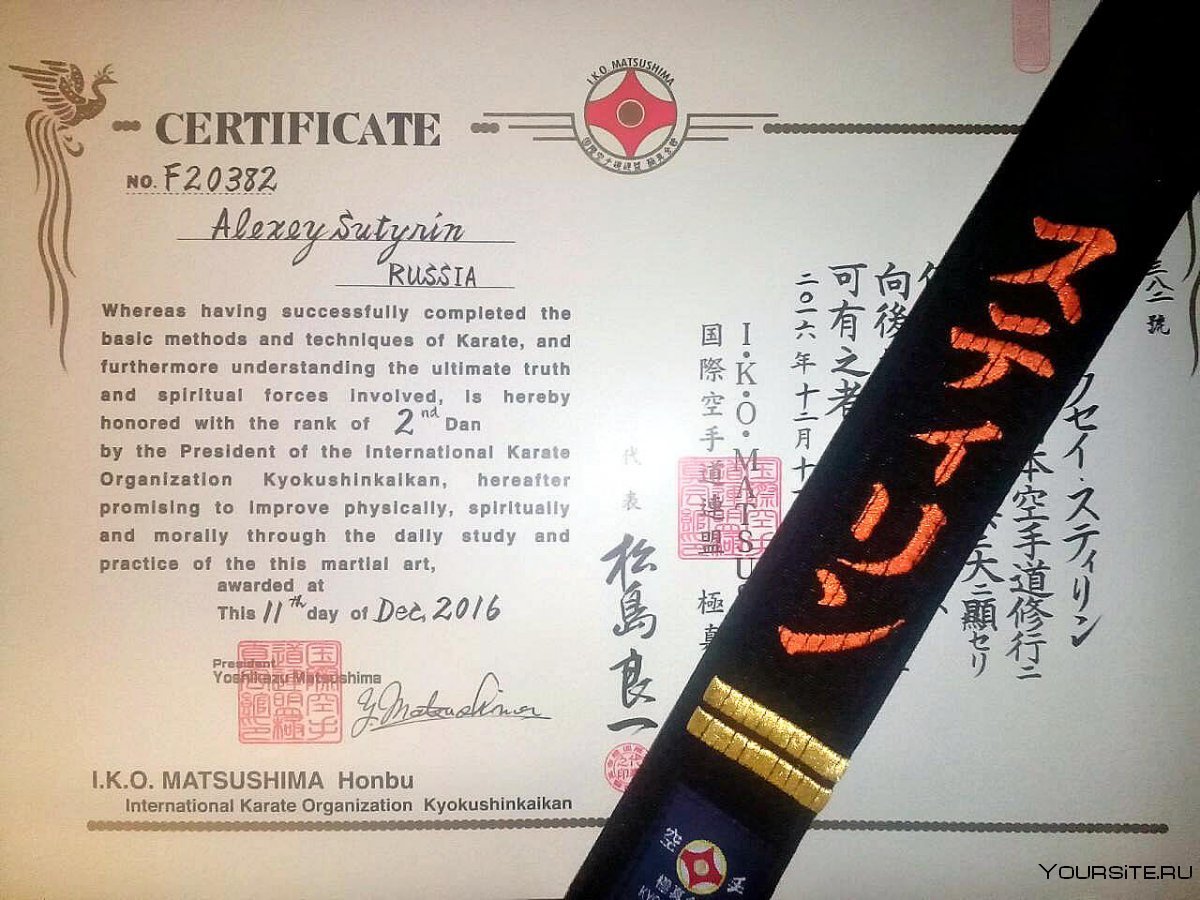 I.K.O. MATSUSHIMA
CERTIFICATE
NO. F20382
Alexey Sutyrin
RUSSIA
Whereas having successfully completed the
basic methods and techniques of Karate, and
furthermore understanding the ultimate truth
and spiritual forces involved, is hereby
honored with the rank of 2nd Dan
by the President of the International Karate
Organization Kyokushinkaikan, hereafter
promising to improve physically, spiritually
and morally through the daily study and
practice of the this martial art,
awarded at
This 11th day of Dec, 2016
President
Yoshikazu Matsushima
Y. Matsushima
I.K.O. MATSUSHIMA Honbu
International Karate Organization Kyokushinkaikan
三八二號
クセイ・スティリン
本空手道修行ニ
大ニ顕セリ
向後
可有之者
二〇一六年十二月十
I・K・O・MATSU
国際空手道連盟 極真
代表
松島良一
スティリン
空
YOURSITE.RU